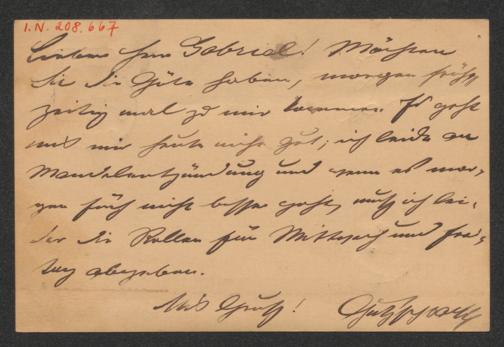 I.N. 208.667
Lieber Herr Gabriel! Möchten
Sie die Güte haben, morgen früh
zeitig mal zu mir kommen. Es geht
mit mir heute nicht gut; ich leide an
Mandelentzündung und wenn es mor-
gen früh nicht besser geht, muß ich lei-
der die Rollen für Mittwoch und Frei-
tag abgeben.
Mit Gruß!